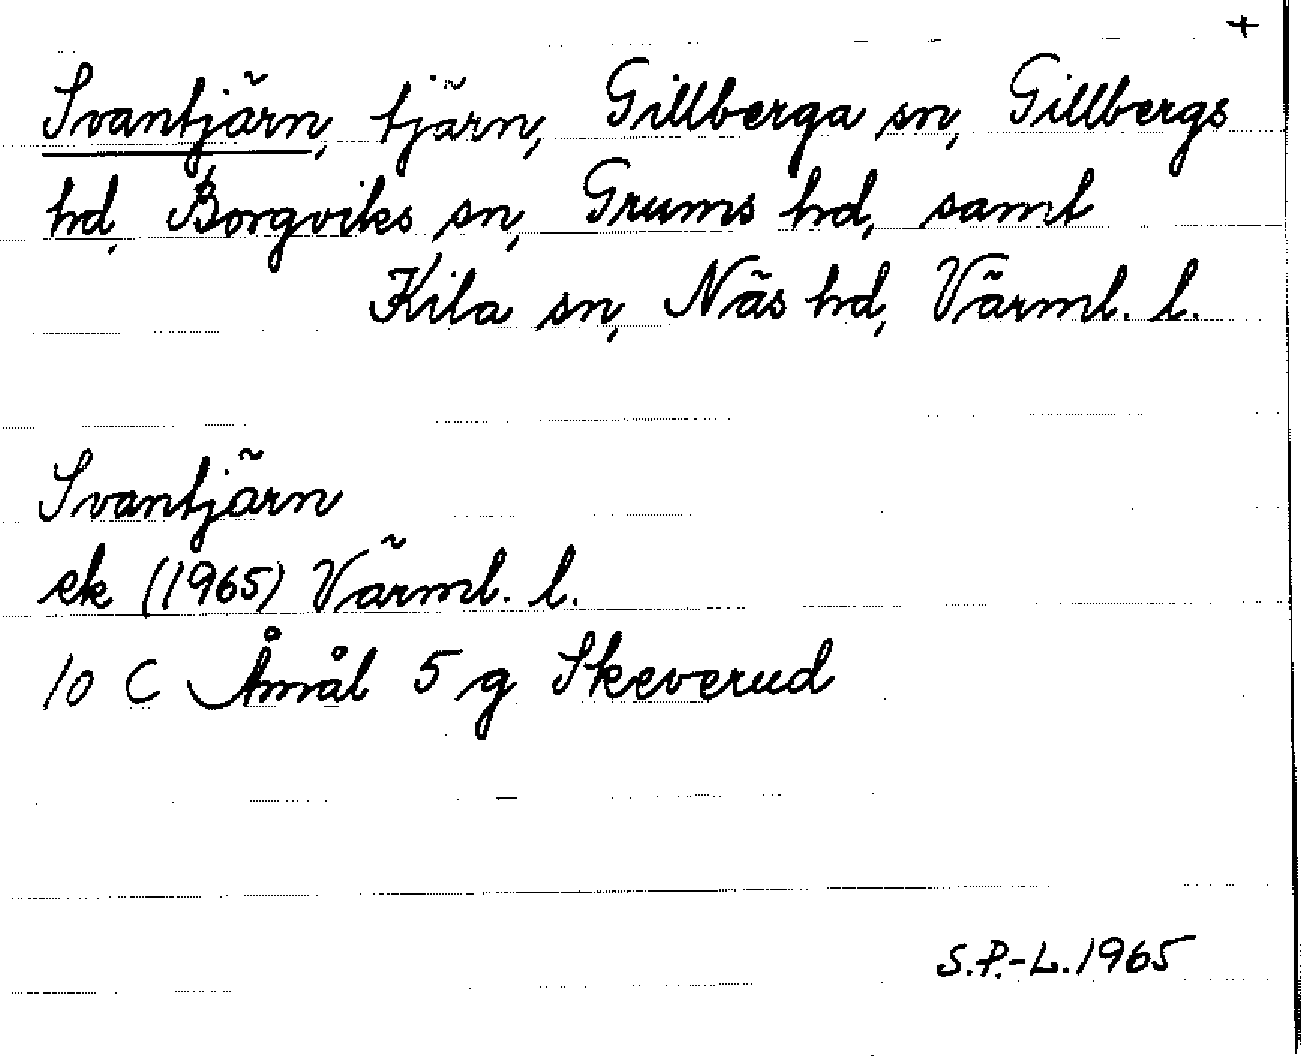 +
Svantjärn, tjärn, Gillberga sn, Gillbergs
hd, Borgviks sn, Grums hd, samt
Kila sn, Näs hd, Värml. l.
Svantjärn
ek (1965) Värml. l.
10 C Åmål 5 g Skeverud
S.P.-L. 1965